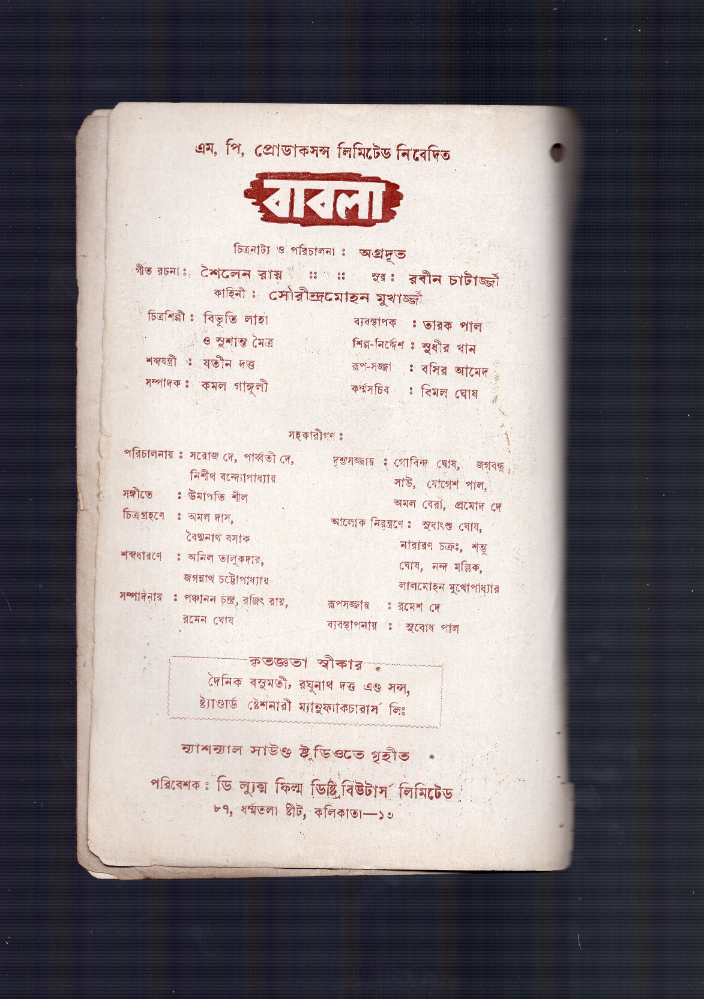 এম, পি, প্রোডাকসন্স লিমিটেড নিবেদিত
বাবলা
চিত্রনাট্য ও পরিচালনা : অগ্রদূত
গীত রচনা : শৈলেন রায় :: :: সুর : রবীন চাটার্জ্জী
কাহিনী : সৌরীন্দ্রমোহন মুখার্জ্জী
চিত্রশিল্পী : বিভূতি লাহা
ও সুশান্ত মৈত্র
শব্দযন্ত্রী : যতীন দত্ত
সম্পাদক : কমল গাঙ্গুলী
ব্যবস্থাপক : তারক পাল
শিল্প-নির্দ্দেশ : সুধীর খান
রূপ-সজ্জা : বসির আমেদ
কর্ম্মসচিব : বিমল ঘোষ
সহকারীগণ :
পরিচালনায় : সরোজ দে, পার্ব্বতী দে,
নিশীথ বন্দ্যোপাধ্যায়
সঙ্গীতে : উমাপতি শীল
চিত্রগ্রহণে : অমল দাস,
বৈদ্যনাথ বসাক
শব্দধারণে : অনিল তালুকদার,
জগন্নাথ চট্টোপাধ্যায়
সম্পাদনায় : পঞ্চানন চন্দ্র, রঞ্জিৎ রায়,
রমেন ঘোষ
দৃশ্যসজ্জায় : গোবিন্দ ঘোষ, জগবন্ধু
সাউ, যোগেশ পাল,
অমল বেরা, প্রমোদ দে
আলোক নিয়ন্ত্রণে : সুধাংশু ঘোষ,
নারায়ণ চক্রঃ, শম্ভু
ঘোষ, নন্দ মল্লিক,
লালমোহন মুখোপাধ্যায়
রূপসজ্জায় : রমেশ দে
ব্যবস্থাপনায় : সুবোধ পাল
কৃতজ্ঞতা স্বীকার
দৈনিক বসুমতী, রঘুনাথ দত্ত এণ্ড সন্স,
ষ্ট্যাণ্ডার্ড ষ্টেশনারী ম্যানুফ্যাকচারার্স লিঃ
ন্যাশন্যাল সাউণ্ড ষ্টুডিওতে গৃহীত
পরিবেশক : ডি ল্যুক্স ফিল্ম ডিষ্ট্রিবিউটার্স লিমিটেড
৮৭, ধর্ম্মতলা ষ্ট্রীট, কলিকাতা—১৩